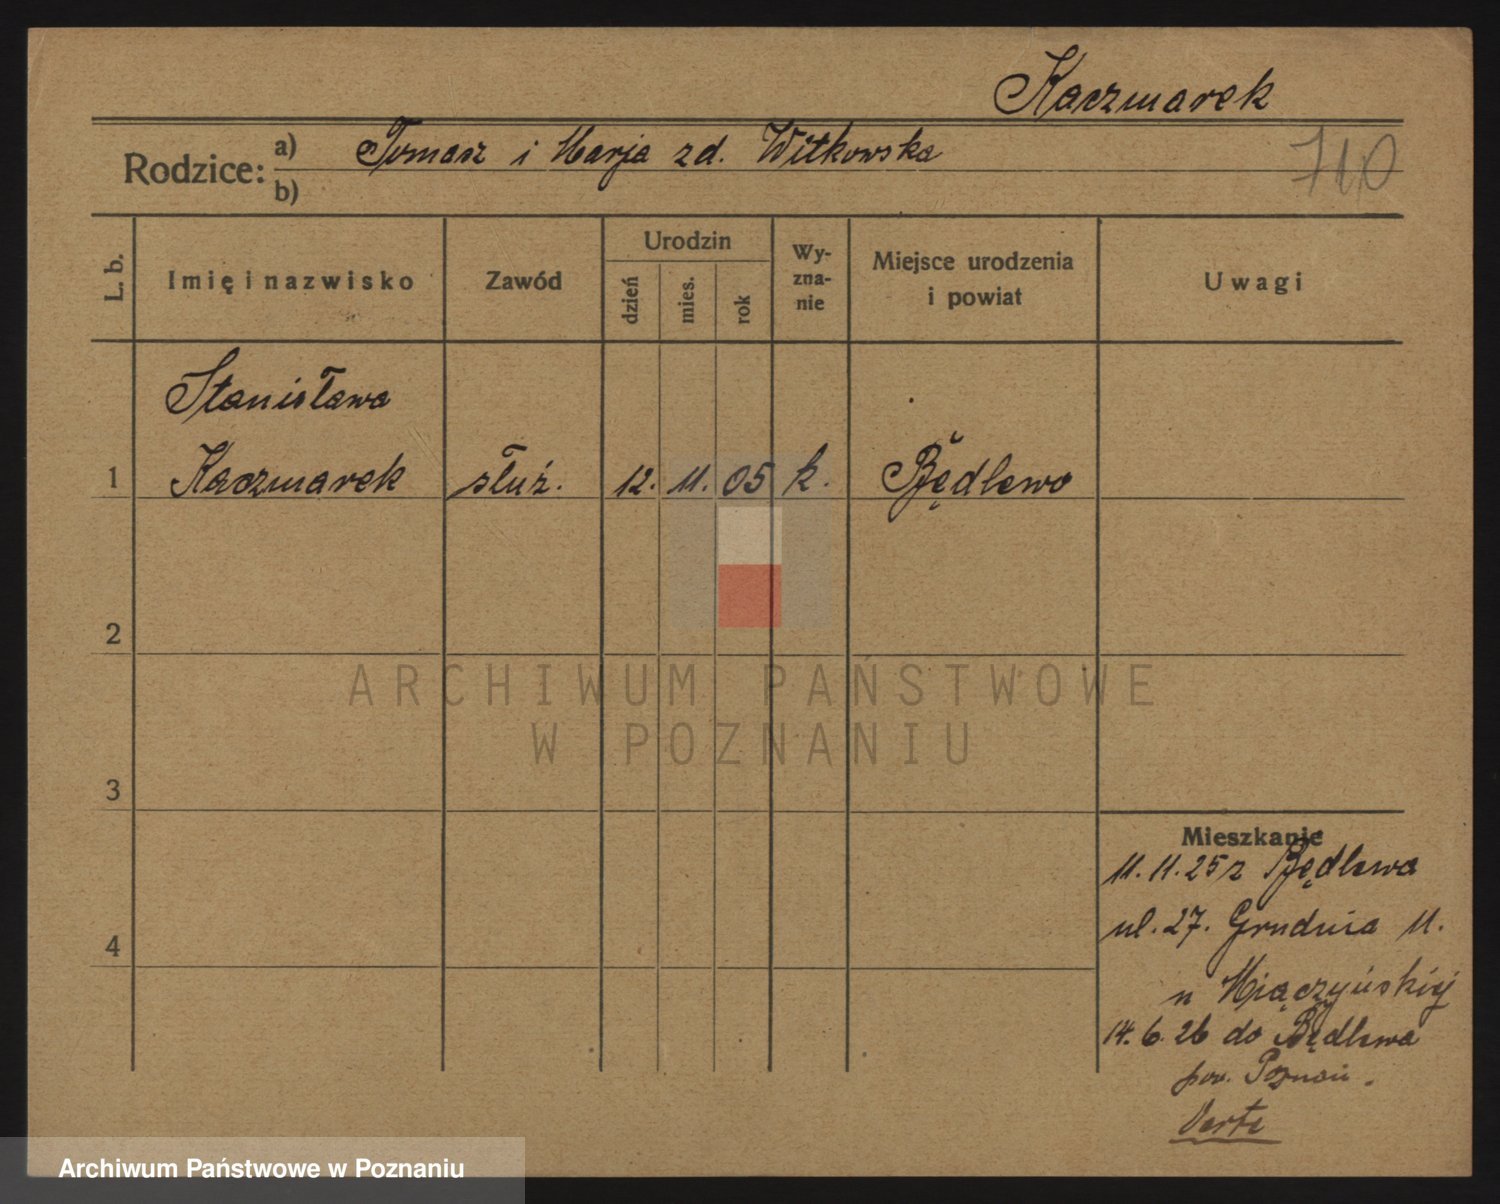 Kaczmarek
Rodzice: a) Tomasz i Marja zd. Witkowska
b)
710
L. b.
Imię i nazwisko
Zawód
Urodzin
dzień
mies.
rok
Wy-
zna-
nie
Miejsce urodzenia
i powiat
Uwagi
Stanisława
1 Kaczmarek służ. 12. 11. 05 k. Będlewo
2
3
4
Mieszkanie
11. 11. 25 z Będlewa
ul. 27. Grudnia 11.
u Miączyńskiej
14. 6. 26 do Będlewa
pow. Poznań.
Verte
ARCHIWUM PAŃSTWOWE
W POZNANIU
Archiwum Państwowe w Poznaniu